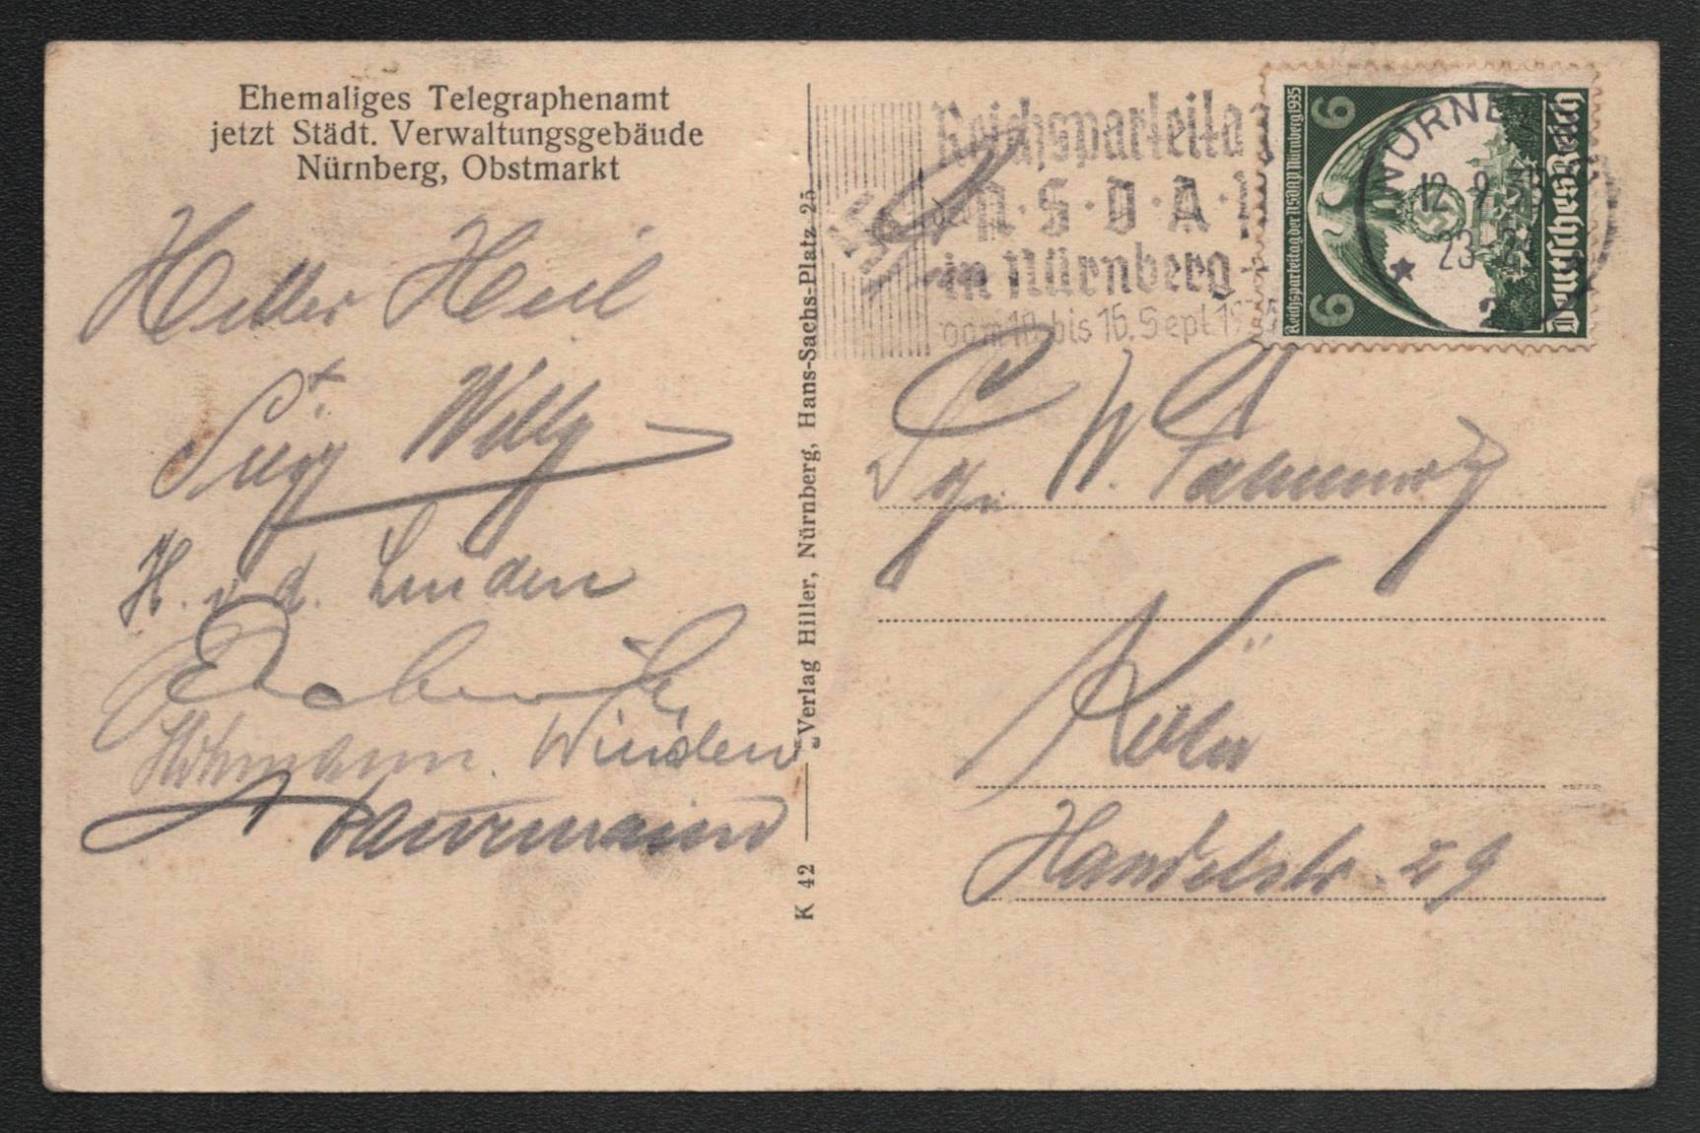 Ehemaliges Telegraphenamt
jetzt Städt. Verwaltungsgebäude
Nürnberg, Obstmarkt
Hitler Heil
Willy
H. v. d. Linden
Hohmann. Winden
K 42
Verlag Hiller, Nürnberg, Hans-Sachs-Platz 25
Reichsparteita
der N·S·D·A·P
in Nürnberg
vom 10. bis 16. Sept. 19
NÜRNBE
12.9.35
23-24
2
Reichsparteitag der NSDAP Nürnberg 1935
6
6
Deutsches Reich
W.
Köln
Handelstr. 29